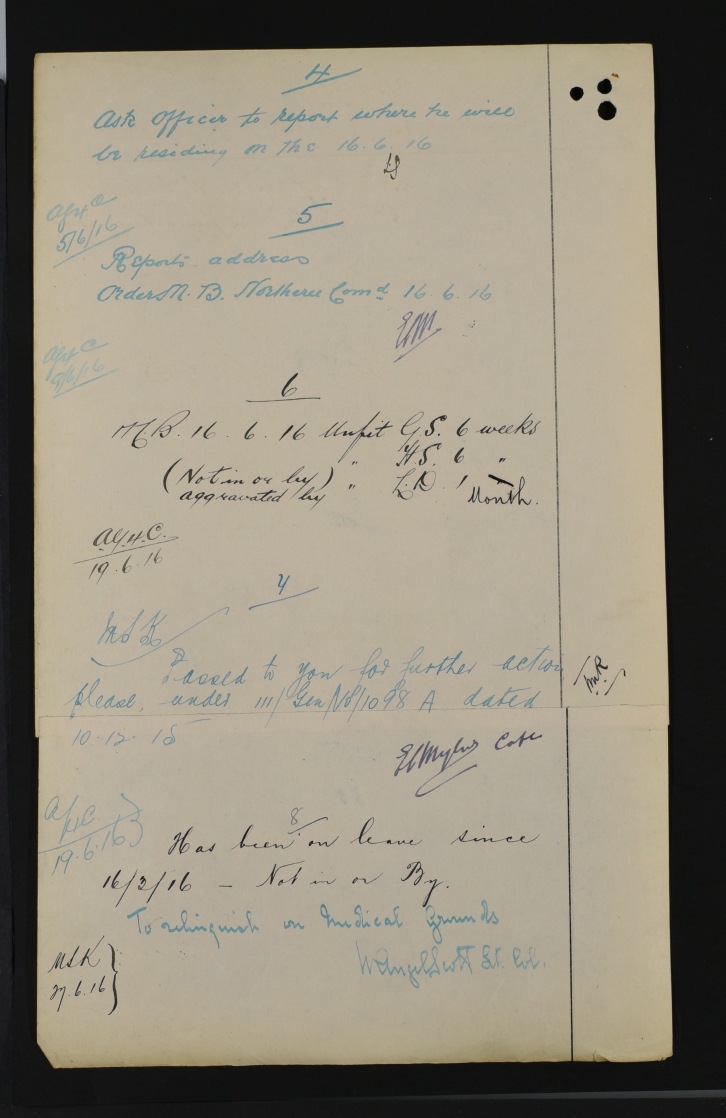 4
Ask Officer to report where he will
be residing on the 16.6.16
AG4C
5/6/16
5
Reports address
Order M.B. Northern Comd 16.6.16
EM
AG4C
9/6/16
6
M.B. 16.6.16 Unfit G.S. 6 weeks
" H.S. 6 "
(Not in or by) " L.D. 1 Month.
aggravated by
A.G.4.C.
19.6.16
7
MSK
Passed to you for further action
please, under 111/Gen/No/1098 A dated
10-12-15
Capt
AG4C
19.6.16
8
Has been on leave since
16/3/16 – Not in or By.
To relinquish on Medical Grounds
Lt. Col.
MSK
27.6.16